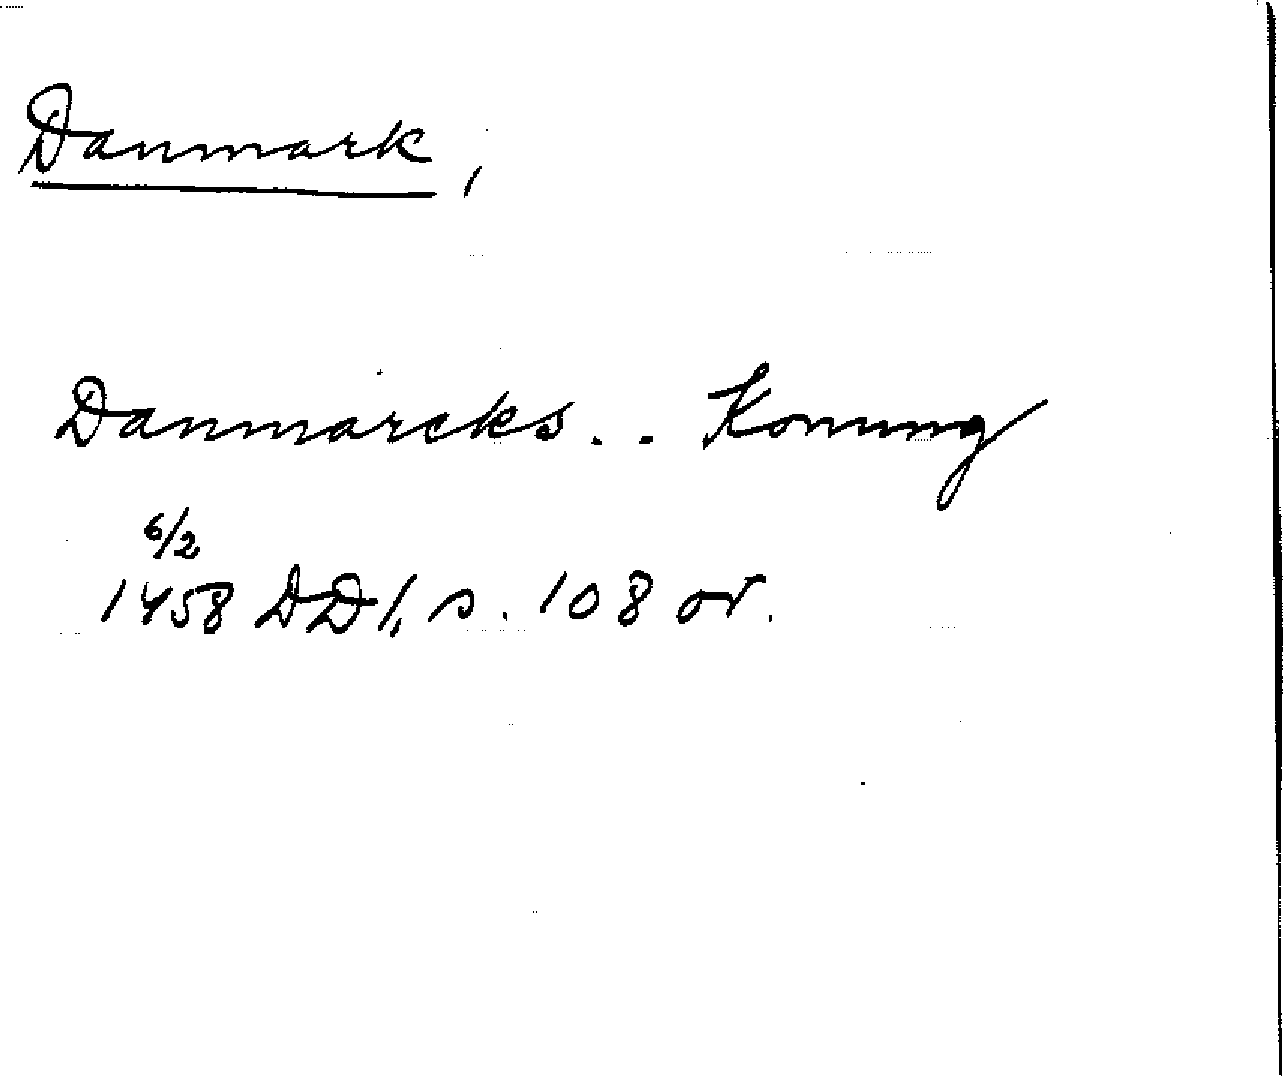 Danmark,
Danmarcks.. Konung
6/2
1458 DD 1, s. 108 or.